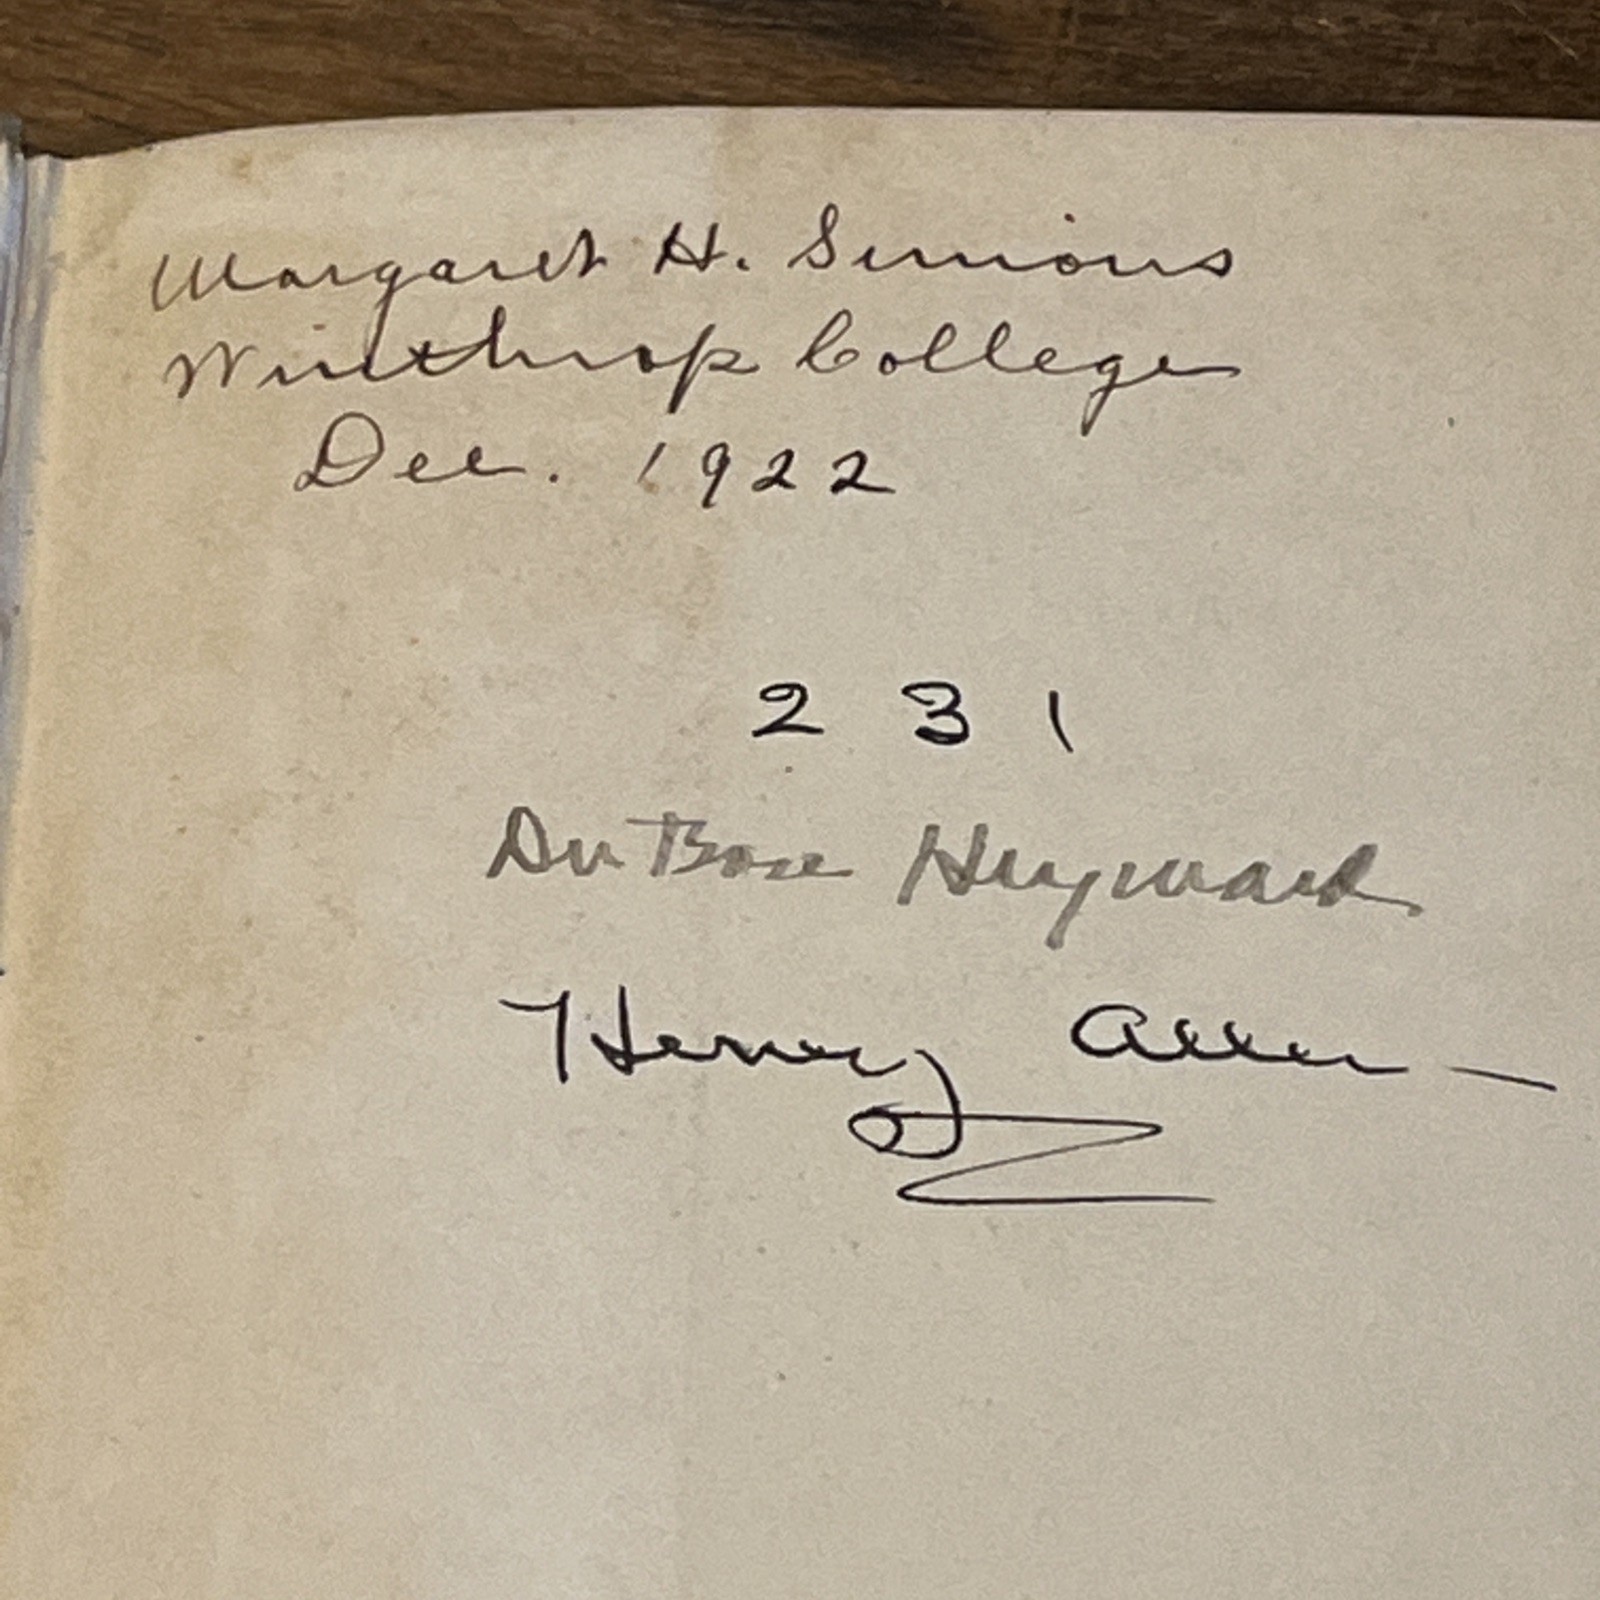 Margaret H. Simons
Winthrop College
Dec. 1922
2 3 1
DuBose Heyward
Hervey Allen